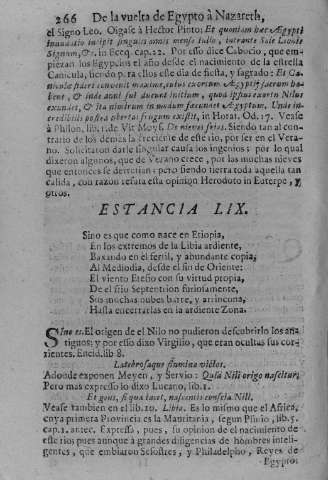 266 De la vuelta de Egypto à Nazareth,
el Signo Leo. Oigase à Hector Pinto: Et quoniam hæc Ægypti
inundatio incipit singulis annis mense Iulio, intrante Sole Leonis
Signum, &c. in Ezeq. cap. 22. Por esso dice Cabocio, que em-
piezan los Egypcios el año desde el nacimiento de la estrella
Canicula, siendo para ellos esse dia de fiesta, y sagrado: Et Ca-
niculæ sideri convenit maxime, cuius exortum Ægyptij sacrum ha-
bent, & inde anni sui ducunt initium, quod ipsius exortu Nilus
exundet, & sta nimbrum in modum facunaet Ægyptum. Unde in-
credibilis postea obertas frugum existit, in Horat. Od. 17. Vease
à Philon, lib. 1. de Vit Moys. De nieves fries. Siendo tan al con-
trario de los demàs la creciente de este rio, por ser en el Vera-
no. Solicitaron darle singular causa los ingenios: por lo qual
dixeron algunos, que de Verano crece, por las muchas nieves
que entonces se derretian: pero siendo tierra toda aquella tan
calida, con razon refuta esta opinion Herodoto in Euterpo, y
otros.
ESTANCIA LIX.
Sino es que como nace en Etiopia,
En los extremos de la Libia ardiente,
Baxando en el fertil, y abundante copia,
Al Mediodia, desde el fin de Oriente:
El viento Etesio con su virtud propia,
De el frio Septentrion furiosamente,
Sus muchas nubes barre, y arrincona,
Hasta encerrarlas en la ardiente Zona.
Sino es. El origen de el Nilo no pudieron descubrirlo los ana-
tiguos; y por esso dixo Virgilio, que eran ocultas sus cor-
rientes. Eneid. lib 8.
Latebrosaque flumina victos.
Adonde exponen Meyen, y Servio: Quia Nili origo nascitur;
Pero mas expresso lo dixo Lucano, lib. 1.
Et gens, si qua iacet, nascenti conscia Nili.
Vease tambien en el lib. 10. Libia. Es lo mismo que el Africa,
cuya primera Provincia es la Mauritania, segun Plinio, lib. 5.
cap. 1. antec. Expresso, pues, su opinion de el nacimiento de
este rio pues aunque à grandes diligencias de hombres inteli-
gentes, que embiaron Sesostres, y Philadelpho, Reyes de
Egypto: